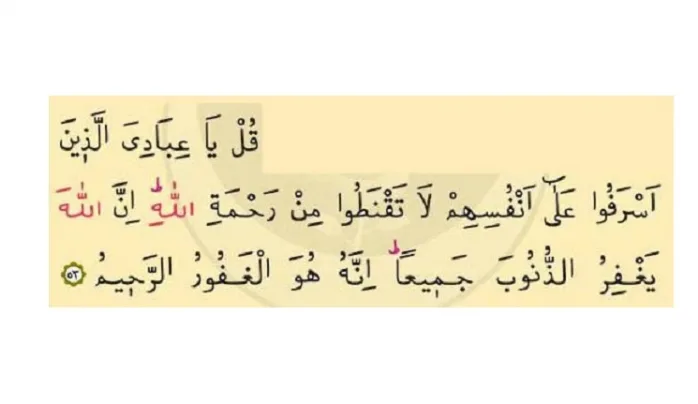 قُلْ يَا عِبَادِىَ الَّذ۪ينَ
اَسْرَفُوا عَلٰٓى اَنْفُسِهِمْ لَا تَقْنَطُوا مِنْ رَحْمَةِ اللّٰهِۜ اِنَّ اللّٰهَ
يَغْفِرُ الذُّنُوبَ جَم۪يعاًۜ اِنَّهُ هُوَ الْغَفُورُ الرَّح۪يمُ ﴿٥٣﴾